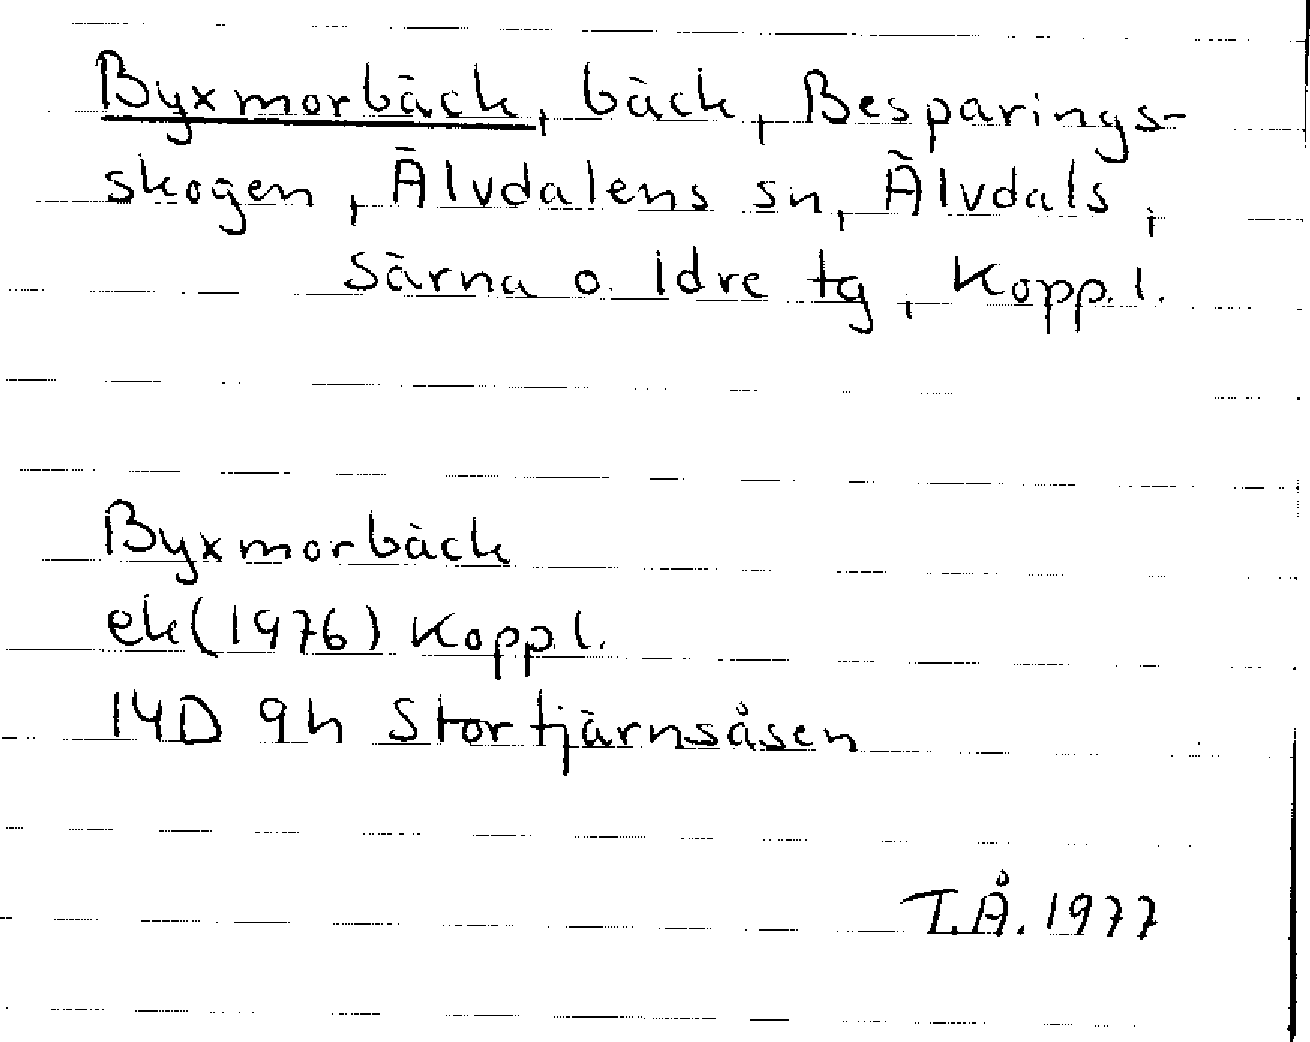 Byxmorbäck, bäck, Besparings-
skogen, Älvdalens sn, Älvdals,
Särna o. Idre tg, Kopp. l.
Byxmorbäck
ek(1976) Kopp l.
14D 9h Stortjärnsåsen
T.Å. 1977